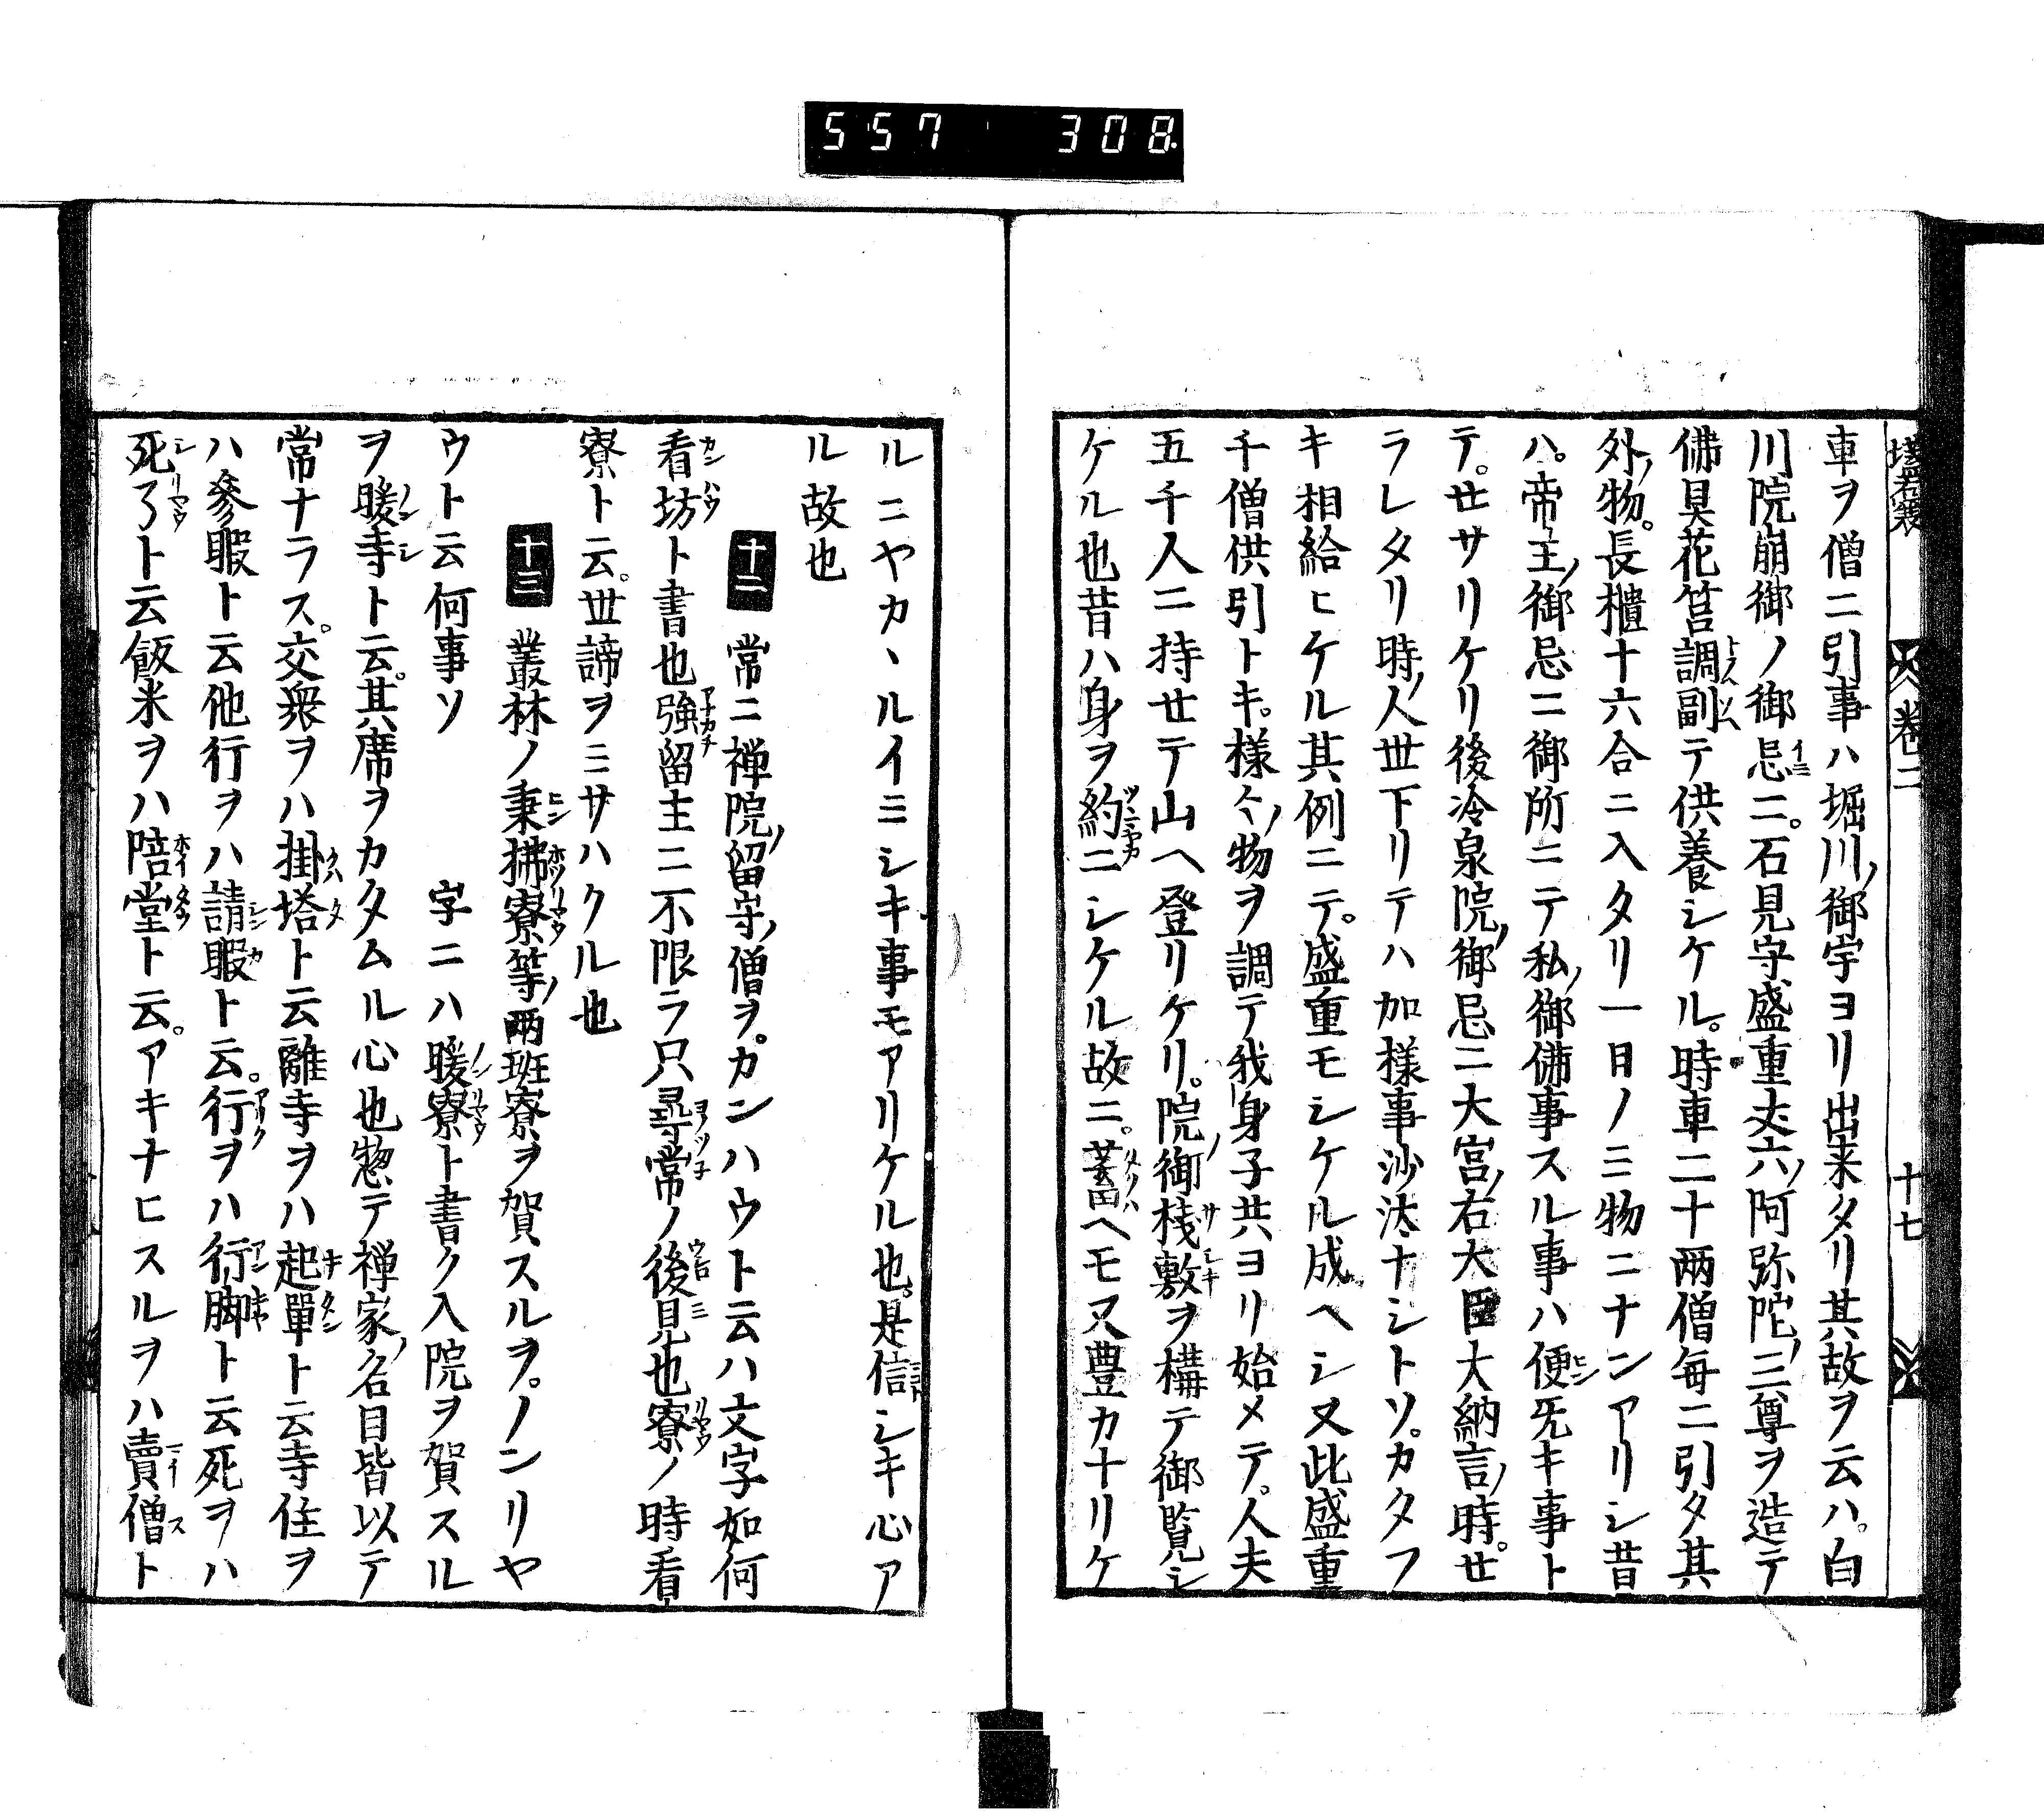 557 308
壒嚢 巻二 十七
車ヲ僧ニ引事ハ堀川ノ御宇ヨリ出来タリ其故ヲ云ハ。白
川院崩御ノ御忌ニ。石見守盛重丈六ノ阿弥陀ノ三尊ヲ造テ
佛具花筥調副テ供養シケル。時車二十両僧毎ニ引タ其
外ノ物。長櫃十六合ニ入タリ一日ノ三物ニナンアリシ昔
ハ。帝王ノ御忌ニ御所ニテ私ノ御佛事スル事ハ便无キ事ト
テ。せサリケリ後冷泉院ノ御忌ニ大宮ノ右大臣大納言ノ時。せ
ラレタリ時ノ人世下リテハ加様事沙汰ナシトソ。カタフ
キ相給ヒケル其例ニテ。盛重モシケル成ヘシ又此盛重
千僧供引トキ。様々ノ物ヲ調テ我身子共ヨリ始メテ。人夫
五千人ニ持せテ山ヘ登リケリ。院ノ御棧敷ヲ構テ御覧シ
ケル也昔ハ身ヲ約ニシケル故ニ。蓄ヘモ又豊カナリケ
ルニヤカヽルイミシキ事モアリケル也。是信シキ心ア
ル故也
十二 常ニ禅院ノ留守ノ僧ヲ。カンハウト云ハ文字如何
看坊ト書也強留主ニ不限ラ只尋常ノ後見也寮ノ時看
寮ト云。世諦ヲミサハクル也
十三 叢林ノ秉拂寮等ノ両班寮ヲ賀スルヲ。ノンリヤ
ウト云何事ソ 字ニハ暖寮ト書ク入院ヲ賀スル
ヲ暖寺ト云。其席ヲカタムル心也惣テ禅家ノ名目皆以テ
常ナラス。交衆ヲハ掛塔ト云離寺ヲハ起單ト云寺住ヲ
ハ参暇ト云他行ヲハ請暇ト云。行ヲハ行脚ト云死ヲハ
死了ト云飯米ヲハ陪堂ト云。アキナヒスルヲハ賣僧ト